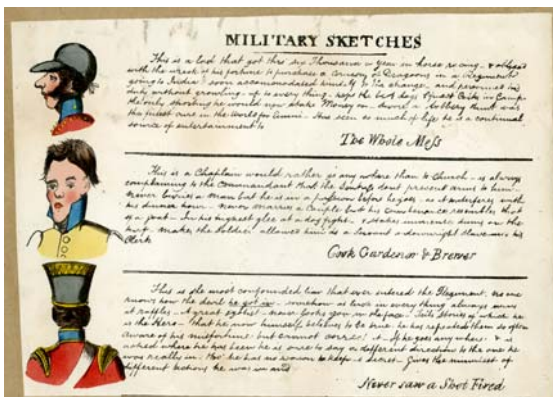 MILITARY SKETCHES
This is a Lad that got thro six Thousand a year in horse racing - & obliged
with the wreck of his fortune to purchase a Cornetcy of Dragoons in a Regiment
going to India; soon accommodated himself to the change, and performs his
duty without growling - up to every thing - kept the best dogs
the only he would now stake Money on - swore a Jobbery hunt was
the finest cure in the World for Ennui - Has seen so much of life he is a continual
source of entertainment to
The Whole Mess
This is a Chaplain would rather is any where than to Church - is always
complaining to the Commandant that the dont present arms to him -
never buries a man but he is in a before he goes - as it interferes with
his dinner hour - never marries a Couple but his Countenance resembles that
of a goat - In his highest glee at a dog fight - & stakes immense sums on the
turf - makes the Soldier allowed him as a Servant a downright slave as his
Clerk
Cook Gardener & Brewer
This is the most confounded liar that ever entered the Regiment, no one
knows how the devil he got in - somehow is luck in every thing always wins
at raffles - A great egotist - never looks you in the face - Tells Stories of which he
is the Hero - that he now himself believes to be true - he has repeated them so often
aware of his misfortune but cannot correct it - If he goes any where & is
asked where he has been he is sure to say a different direction to the one he
was really in - tho' he has no reason to keep a secret - Gives the minutest of
different actions he was in and
Never saw a Shot Fired